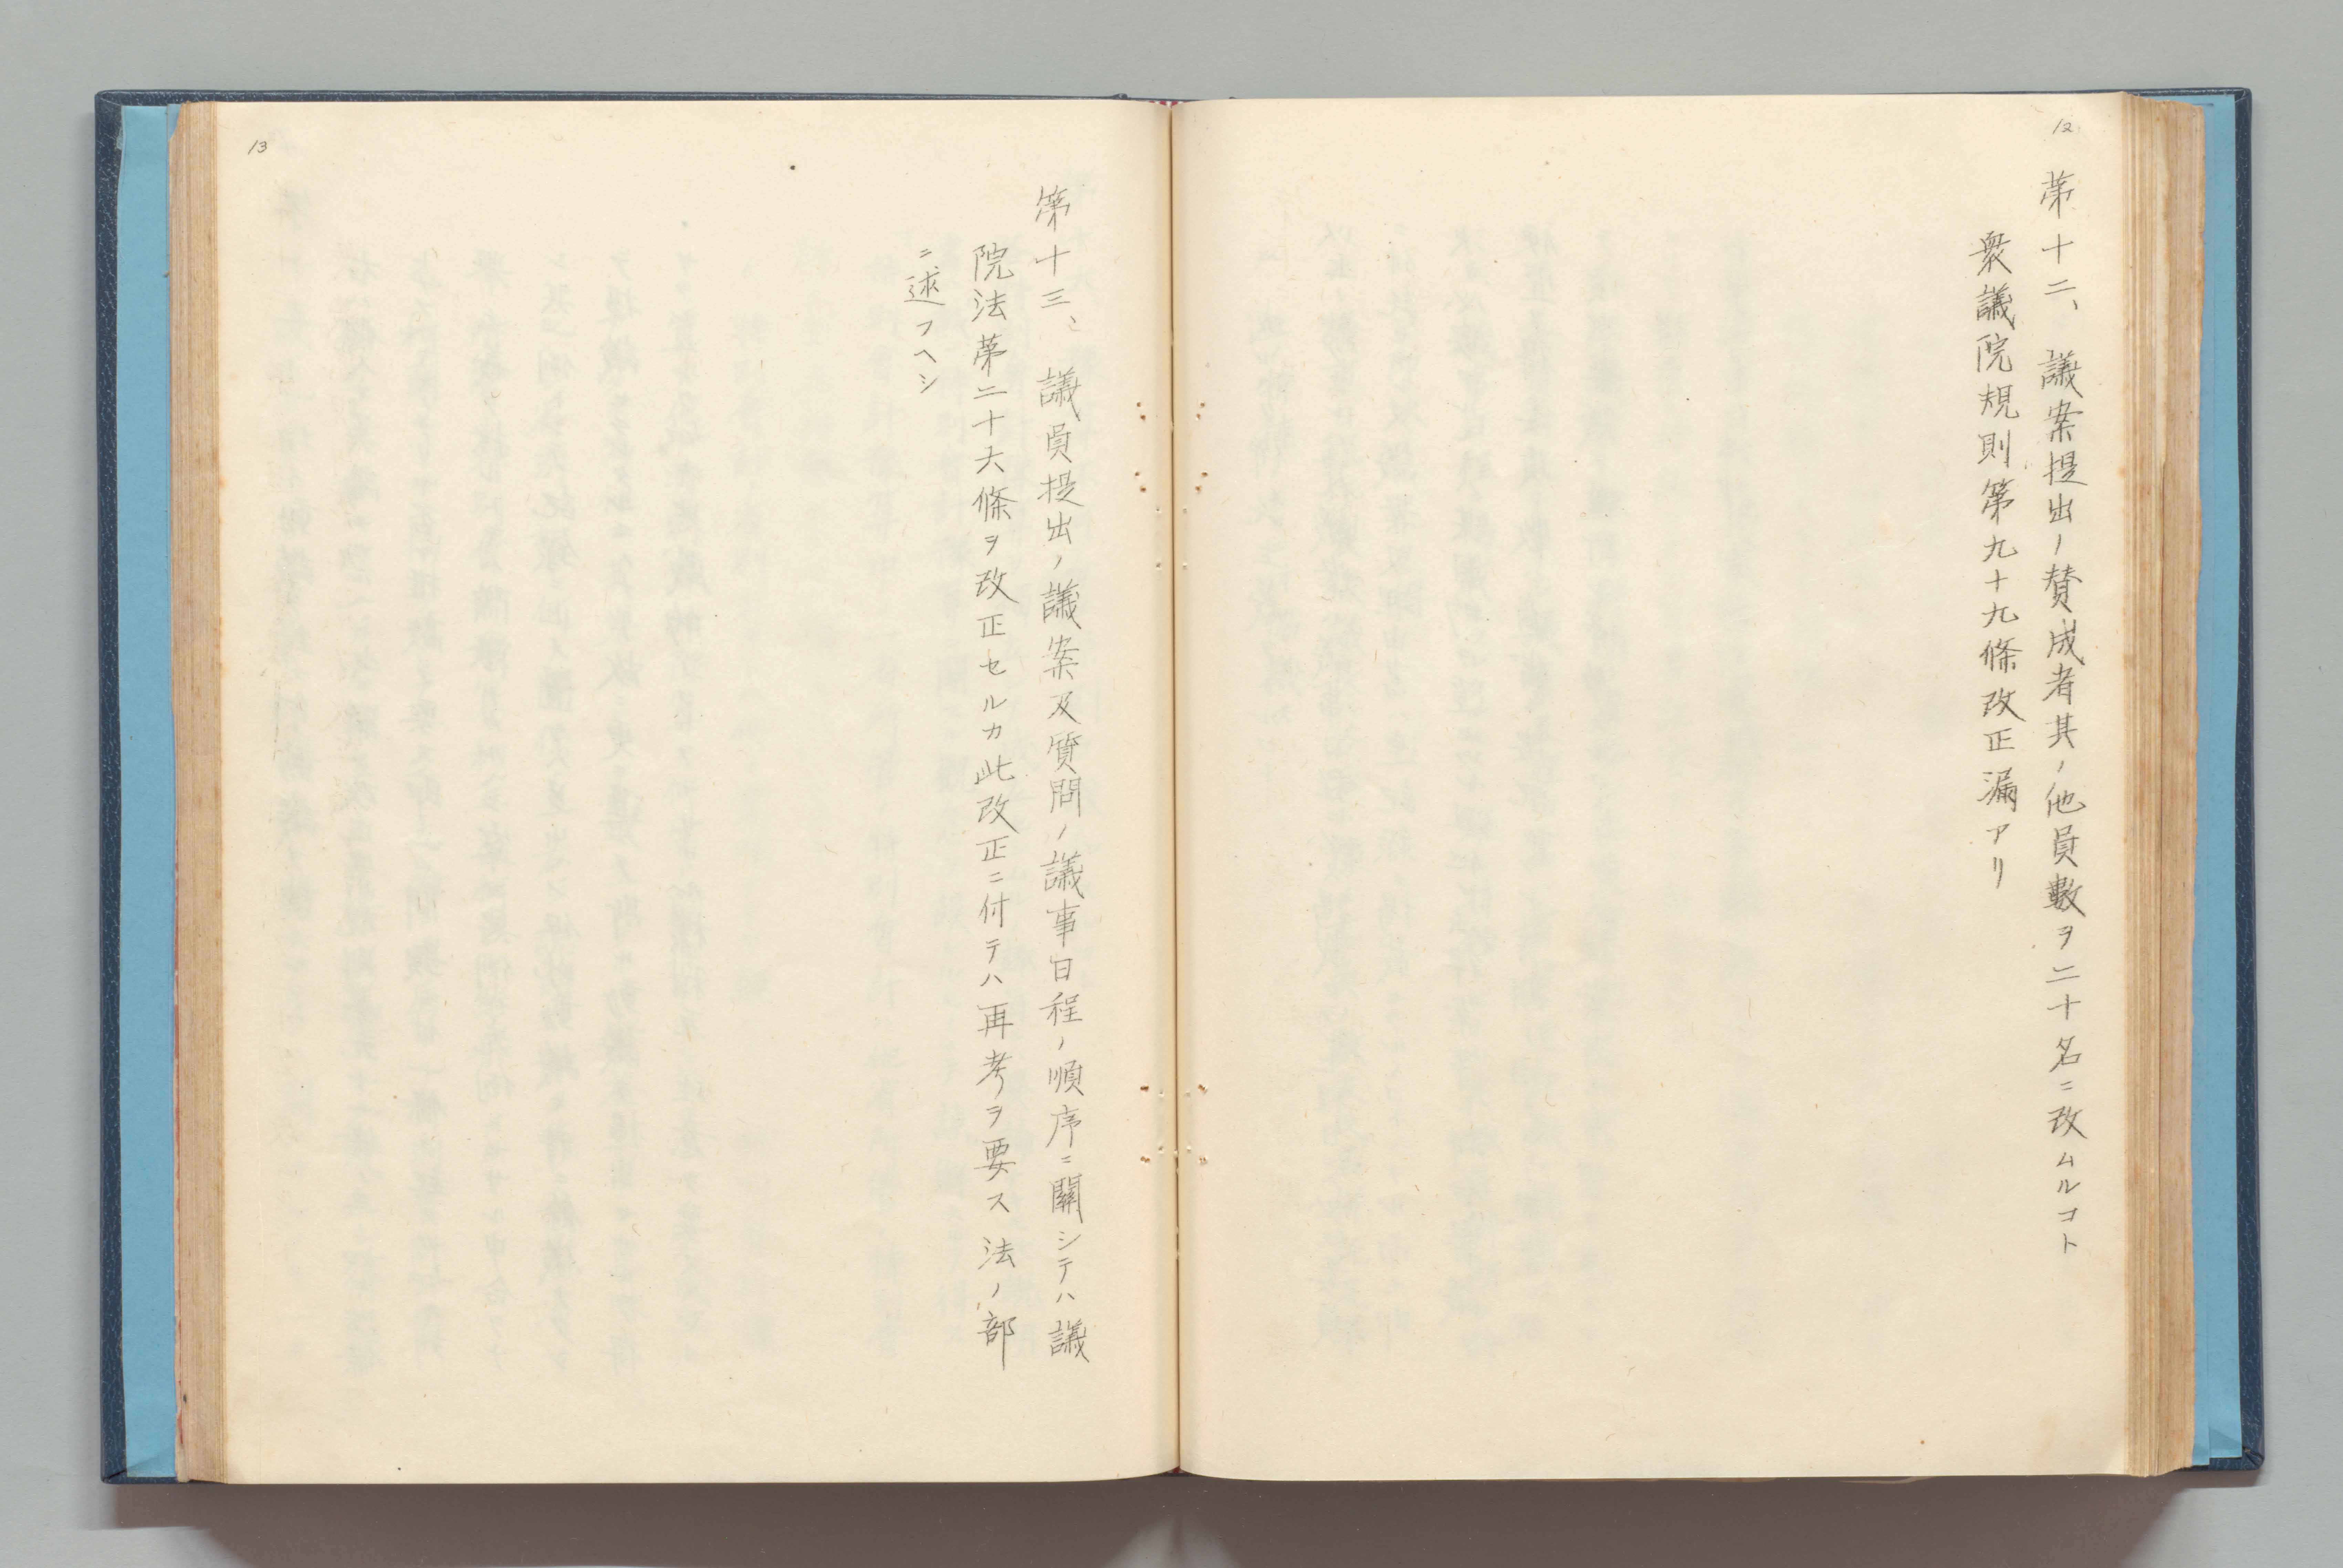 12
第十二、議案提出ノ賛成者其ノ他員數ヲ二十名ニ改ムルコト
衆議院規則第九十九條改正漏アリ
13
第十三、議員提出ノ議案及質問ノ議事日程ノ順序ニ關シテハ議
院法第二十六條ヲ改正セルカ此改正ニ付テハ再考ヲ要ス法ノ部
ニ述フヘシ